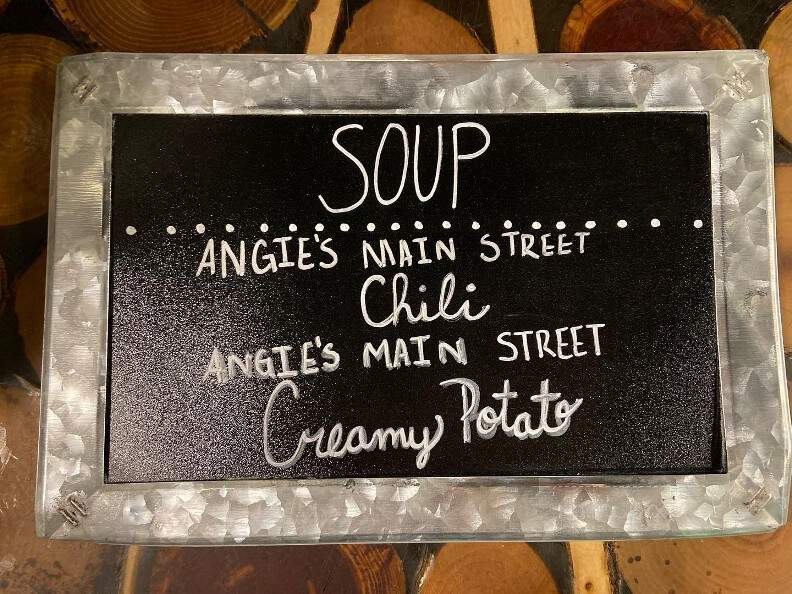 SOUP
ANGIE'S MAIN STREET
Chili
ANGIE'S MAIN STREET
Creamy Potato